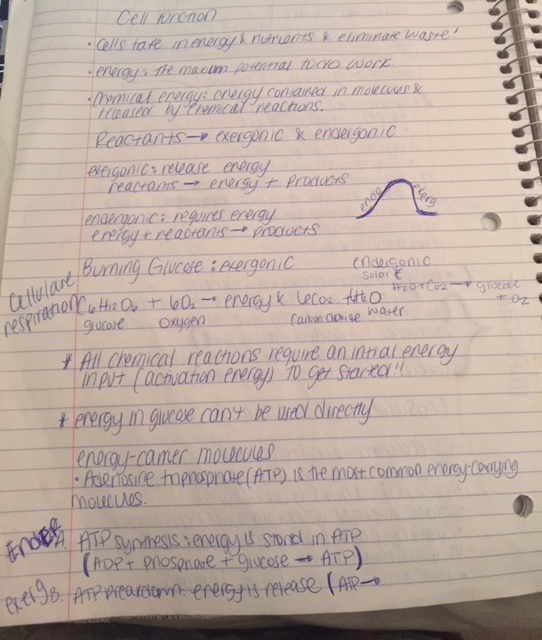 Cell function
• Cells take in energy & nutrients & eliminate waste!
• energy: the maxum potential to do work
• Chemical energy: energy contained in molecules &
released by chemical reactions.
Reactants → exergonic & endergonic
exergonic: release energy
reactants → energy + products
endo exerg
endergonic: requires energy
energy + reactants → products
Burning Glucose: exergonic endergonic
solar E
Cellulare
respiration C6H12O6 + 6O2 → energy & 6CO2 + H2O H2O + CO2 → glucose
+ O2
glucose oxygen Carbon dioxide water
* All chemical reactions require an intial energy
input (activation energy) to get started!!
* energy in glucose can't be used directly
energy-carrier molecules
• Adenosine triphosphate (ATP) is the most common energy-carrying
molucules.
A. ATP synthesis: energy is stored in ATP
(ADP + phosphate + glucose → ATP)
exerg B. ATP breakdown: energy is release (ATP →